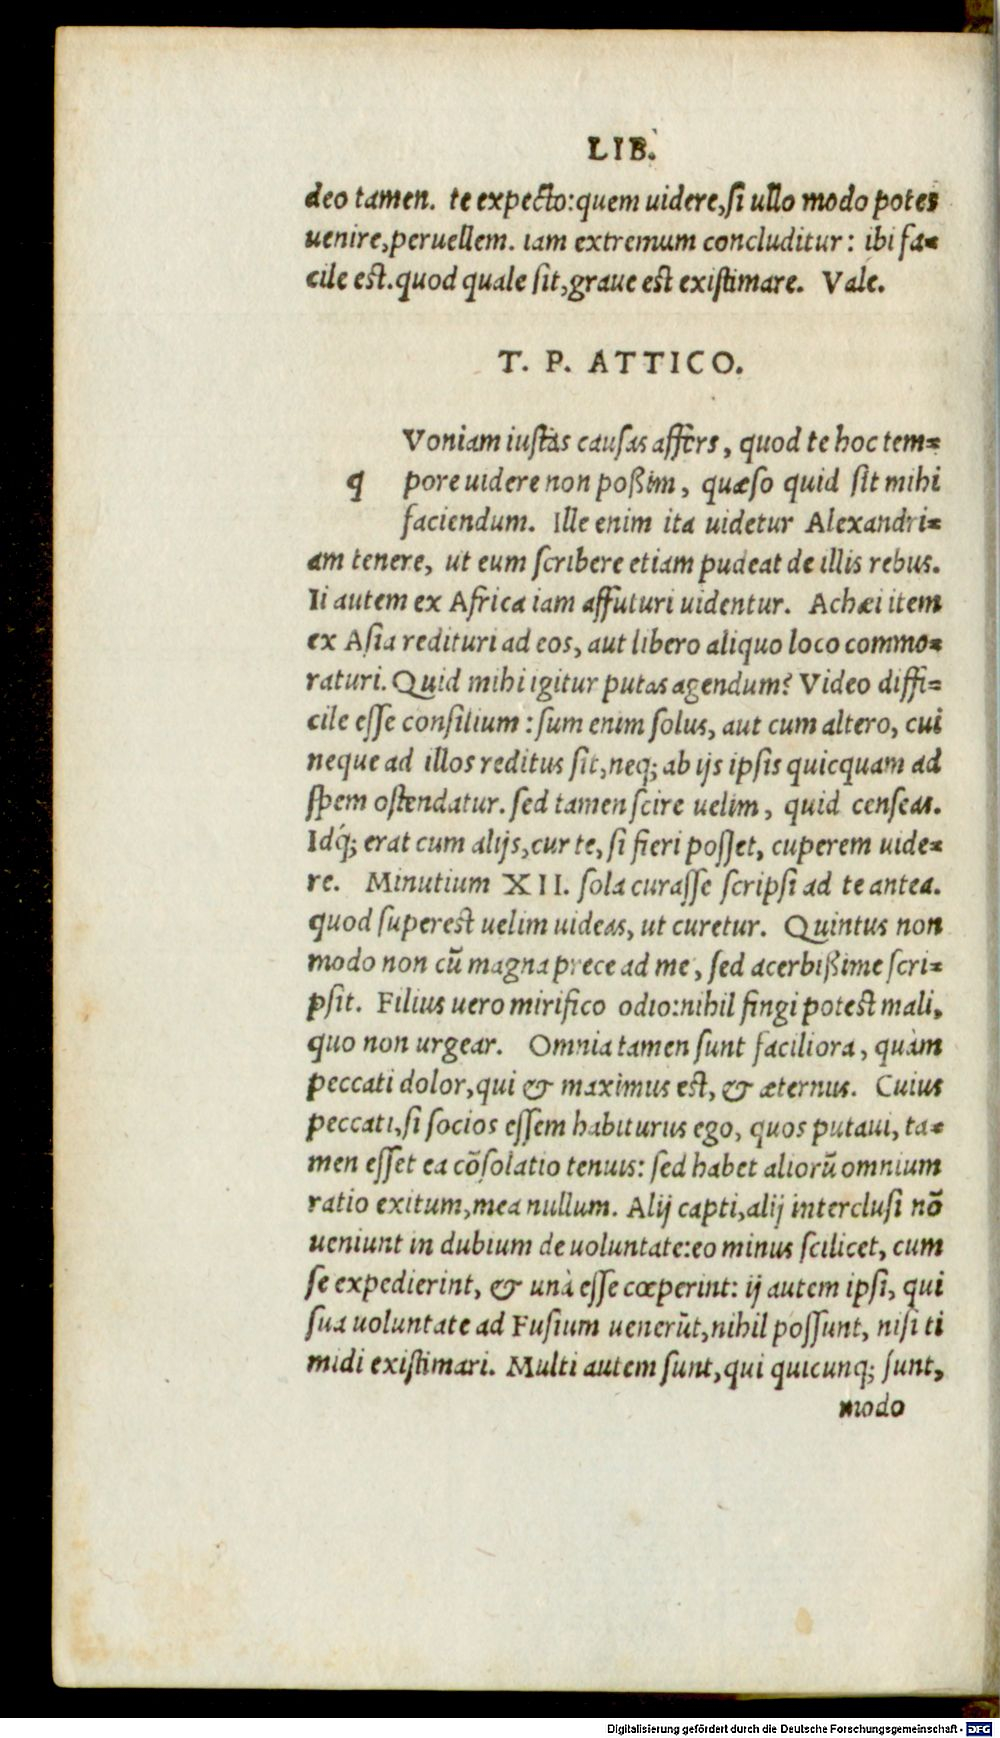 LIB.
deo tamen. te expecto:quem uidere,si ullo modo potes
uenire,peruellem. iam extremum concluditur: ibi fa=
cile est.quod quale sit,graue est existimare. Vale.
T. P. ATTICO.
Voniam iustas causas affers, quod te hoc tem=
q pore uidere non poßim, quæso quid sit mihi
faciendum. Ille enim ita uidetur Alexandri=
am tenere, ut eum scribere etiam pudeat de illis rebus.
Ii autem ex Africa iam affuturi uidentur. Achæi item
ex Asia redituri ad eos, aut libero aliquo loco commo=
raturi. Quid mihi igitur putas agendum? Video diffi=
cile esse consilium: sum enim solus, aut cum altero, cui
neque ad illos reditus sit,neq; ab ijs ipsis quicquam ad
spem ostendatur. sed tamen scire uelim, quid censeas.
Idq́; erat cum alijs,cur te, si fieri posset, cuperem uide=
re. Minutium XII. sola curasse scripsi ad te antea.
quod superest uelim uideas, ut curetur. Quintus non
modo non cũ magna prece ad me, sed acerbißime scri=
psit. Filius uero mirifico odio:nihil fingi potest mali,
quo non urgear. Omnia tamen sunt faciliora, quàm
peccati dolor,qui & maximus est, & æternus. Cuius
peccati,si socios essem habiturus ego, quos putaui, ta=
men esset ea cõsolatio tenuis: sed habet aliorũ omnium
ratio exitum,mea nullum. Alij capti,alij interclusi nõ
ueniunt in dubium de uoluntate:eo minus scilicet, cum
se expedierint, & unà esse cœperint: ij autem ipsi, qui
sua uoluntate ad Fusium uenerũt,nihil possunt, nisi ti
midi existimari. Multi autem sunt,qui quicunq; sunt,
modo
Digitalisierung gefördert durch die Deutsche Forschungsgemeinschaft - DFG